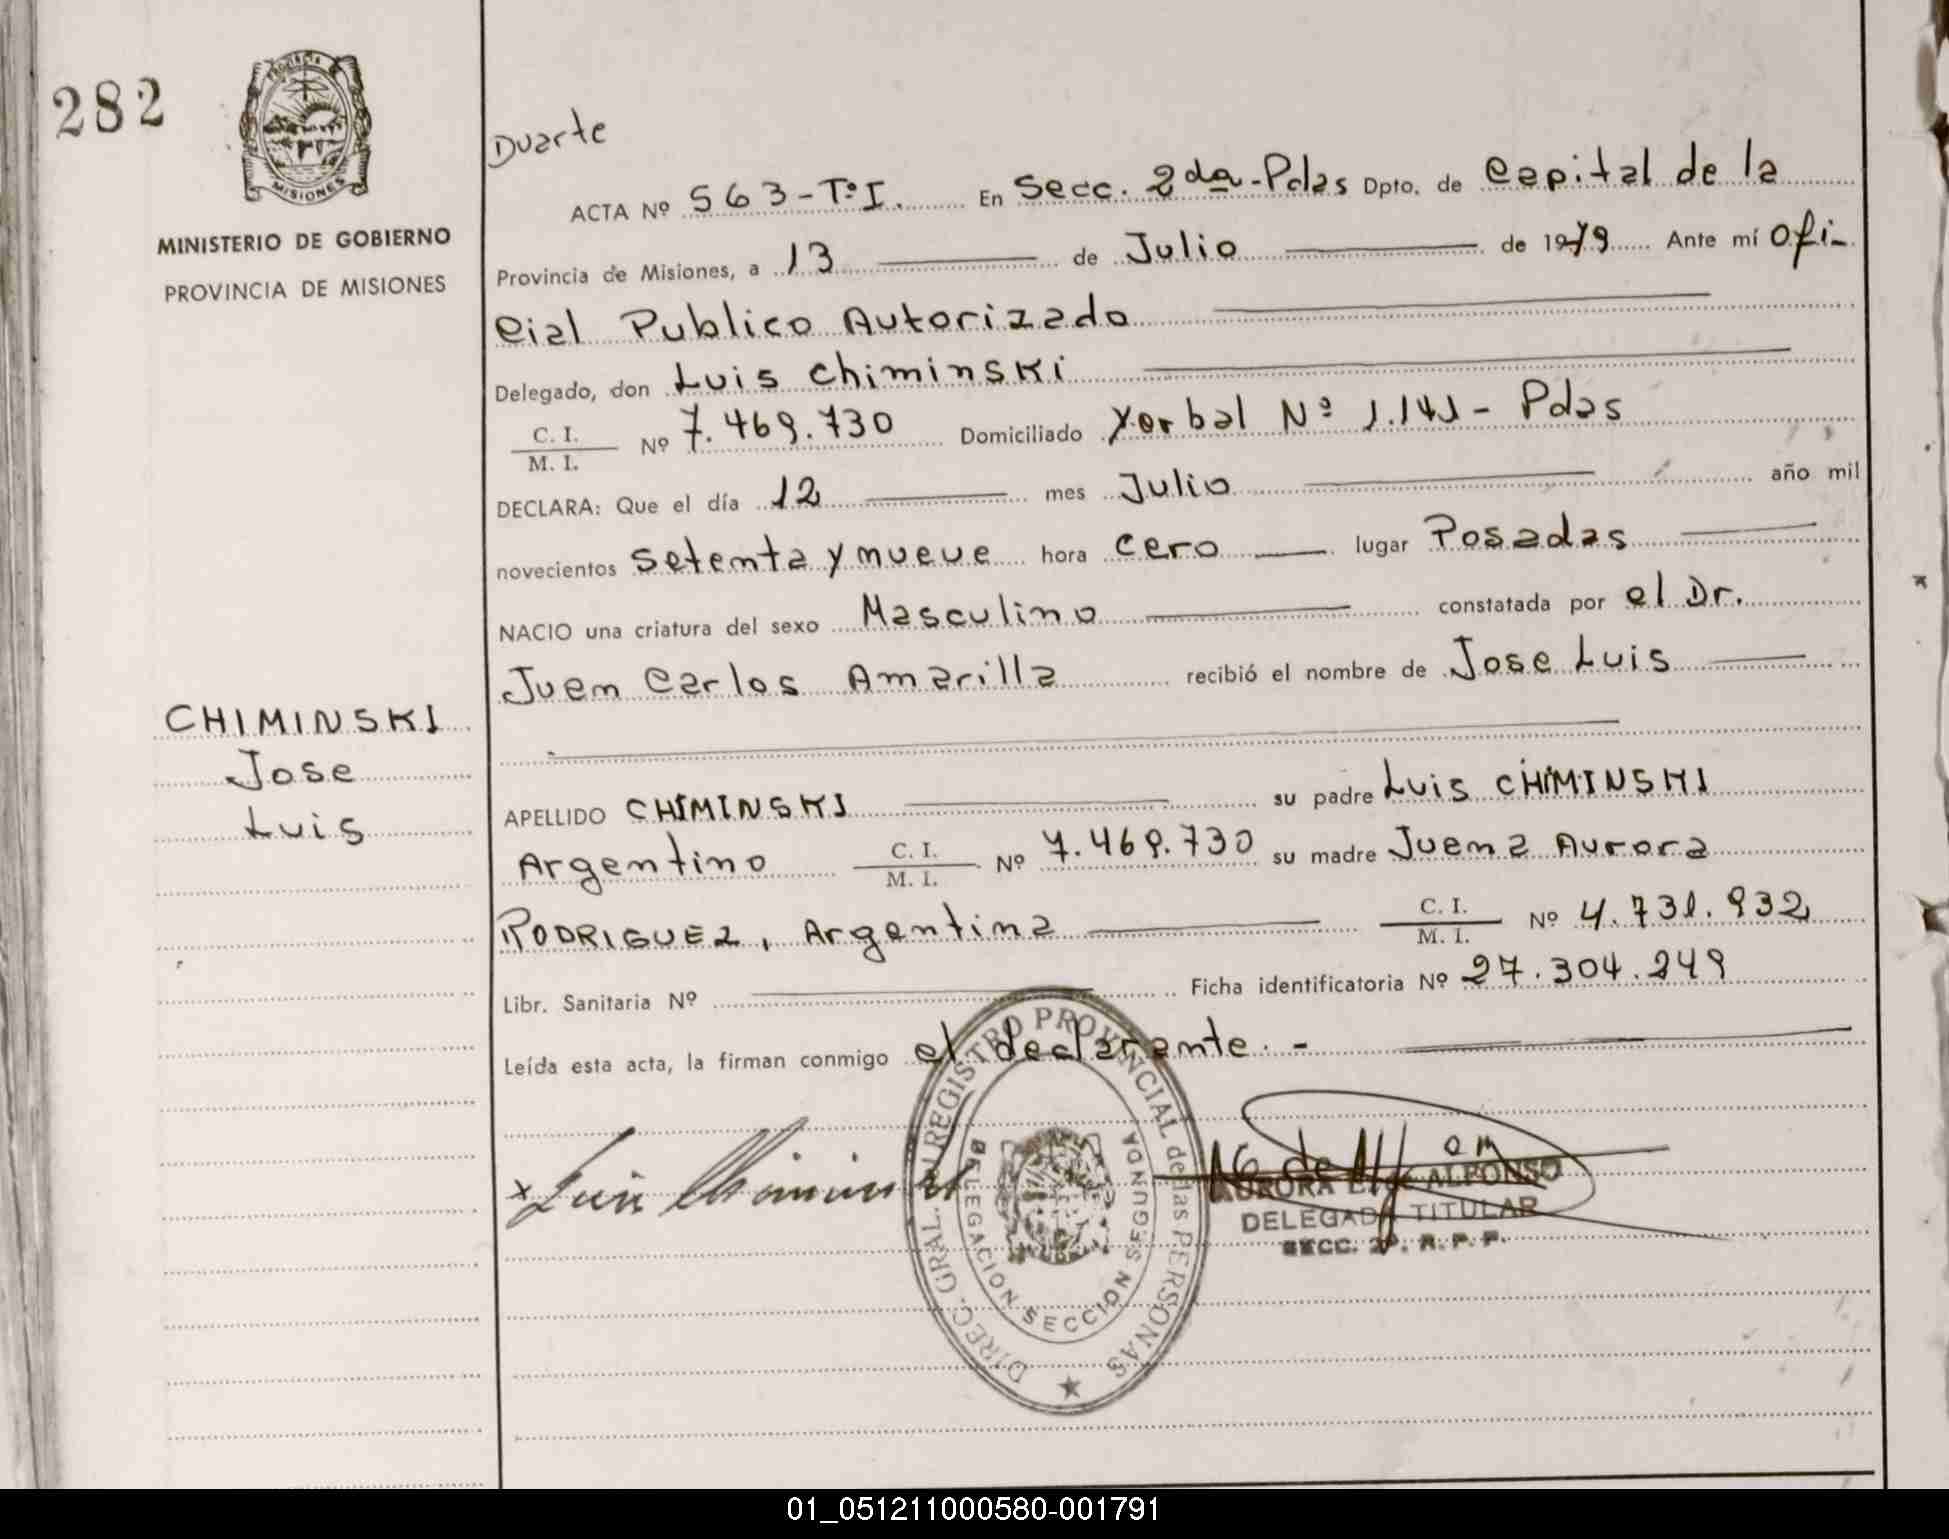 282
PROVINCIA DE
MISIONES
MINISTERIO DE GOBIERNO
PROVINCIA DE MISIONES
Duarte
ACTA Nº 563-TºI. En Secc. 2da-Pdas Dpto. de Capital de la
Provincia de Misiones, a 13 de Julio de 1979 Ante mí Ofi-
cial Publico Autorizado
Delegado, don Luis Chiminski
C. I.
M. I. Nº 7.469.730 Domiciliado Yerbal Nº 1.141 - Pdas
DECLARA: Que el día 12 mes Julio año mil
novecientos setenta y nueve hora cero lugar Posadas
NACIO una criatura del sexo Masculino constatada por el Dr.
Juan Carlos Amarilla recibió el nombre de Jose Luis
CHIMINSKI
Jose
Luis
APELLIDO CHIMINSKI su padre Luis CHIMINSKI
Argentino C. I.
M. I. Nº 7.469.730 su madre Juana Aurora
RODRIGUEZ, Argentina C. I.
M. I. Nº 4.731.932
Libr. Sanitaria Nº Ficha identificatoria Nº 27.304.249
Leída esta acta, la firman conmigo el declarante. -
x Luis Chiminski
DIREC. GRAL. REGISTRO PROVINCIAL de las PERSONAS
DELEGACION SECCION SEGUNDA
AURORA ALFONSO
DELEGADA TITULAR
SECC. 2ª. R. P. P.
01_051211000580-001791